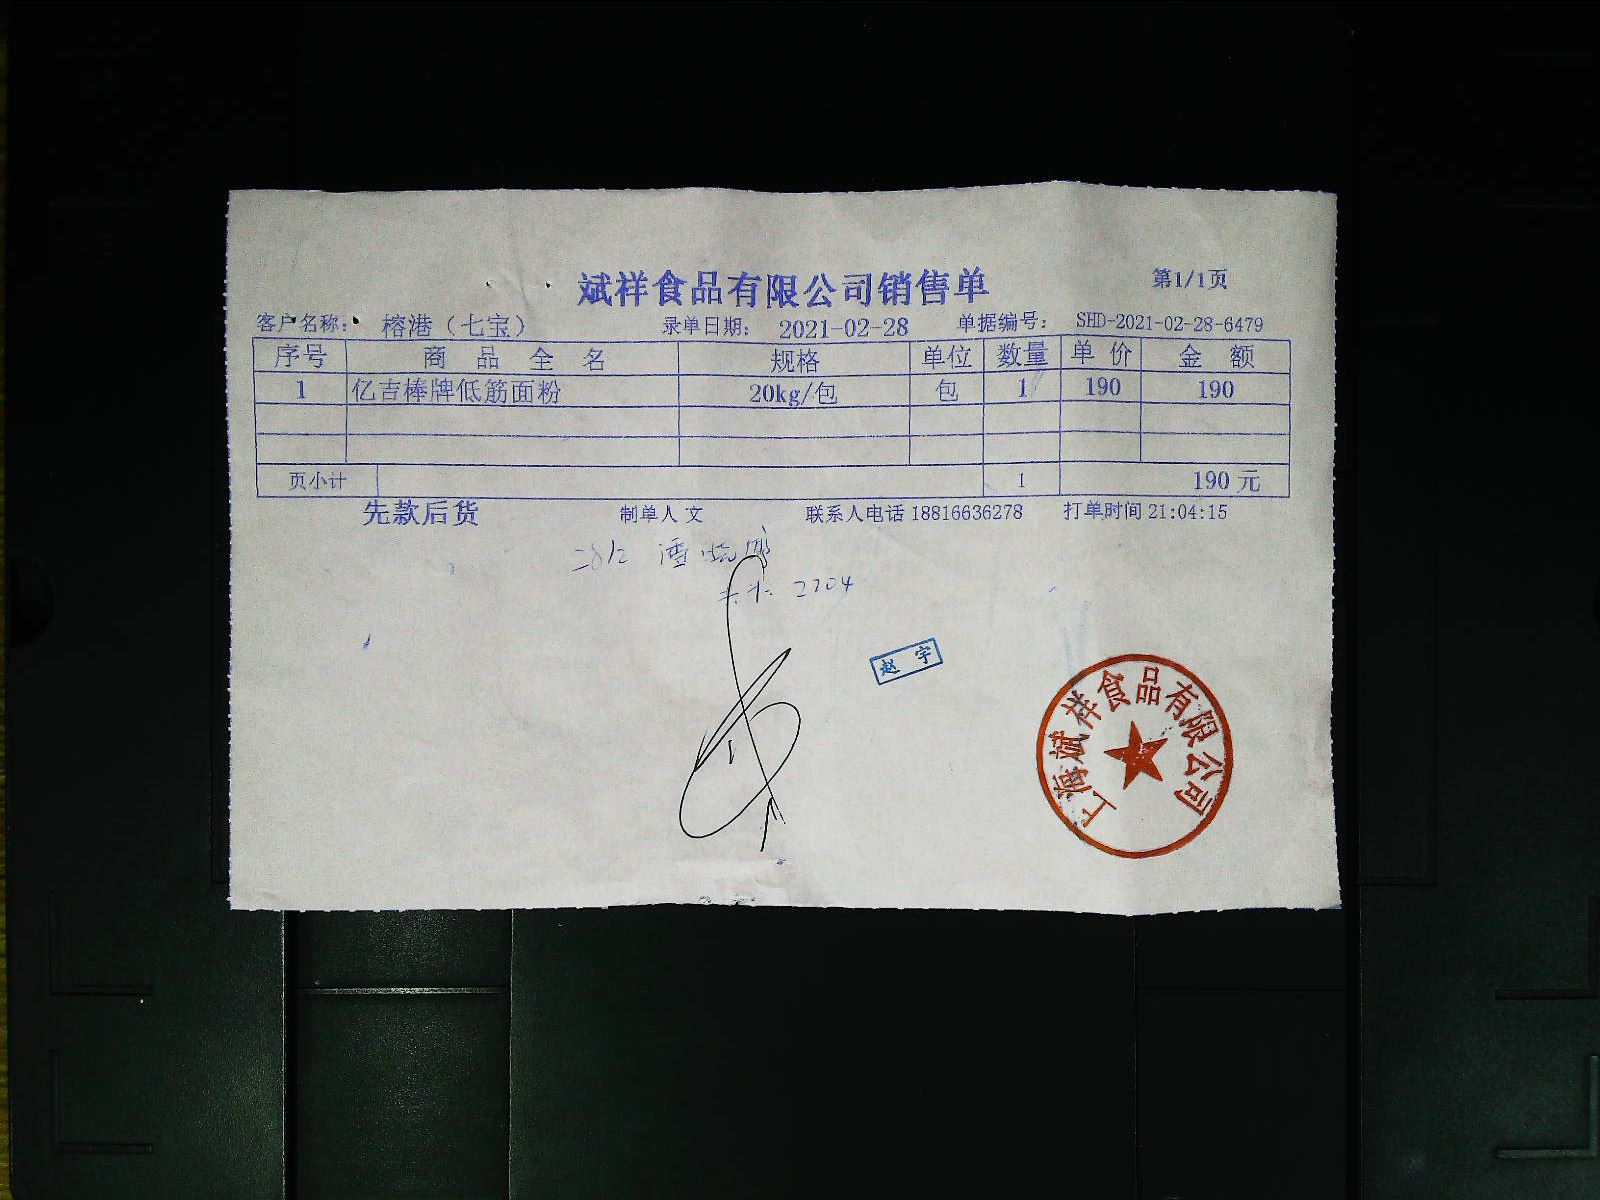 斌祥食品有限公司销售单 第1/1页
客户名称： 榕港（七宝） 录单日期： 2021-02-28 单据编号： SHD-2021-02-28-6479
序号 商品全名 规格 单位 数量 单价 金额
1 亿吉棒牌低筋面粉 20kg/包 包 1 190 190
页小计 1 190元
先款后货 制单人 文 联系人电话 18816636278 打单时间 21:04:15
2204
赵宇
上海斌祥食品有限公司